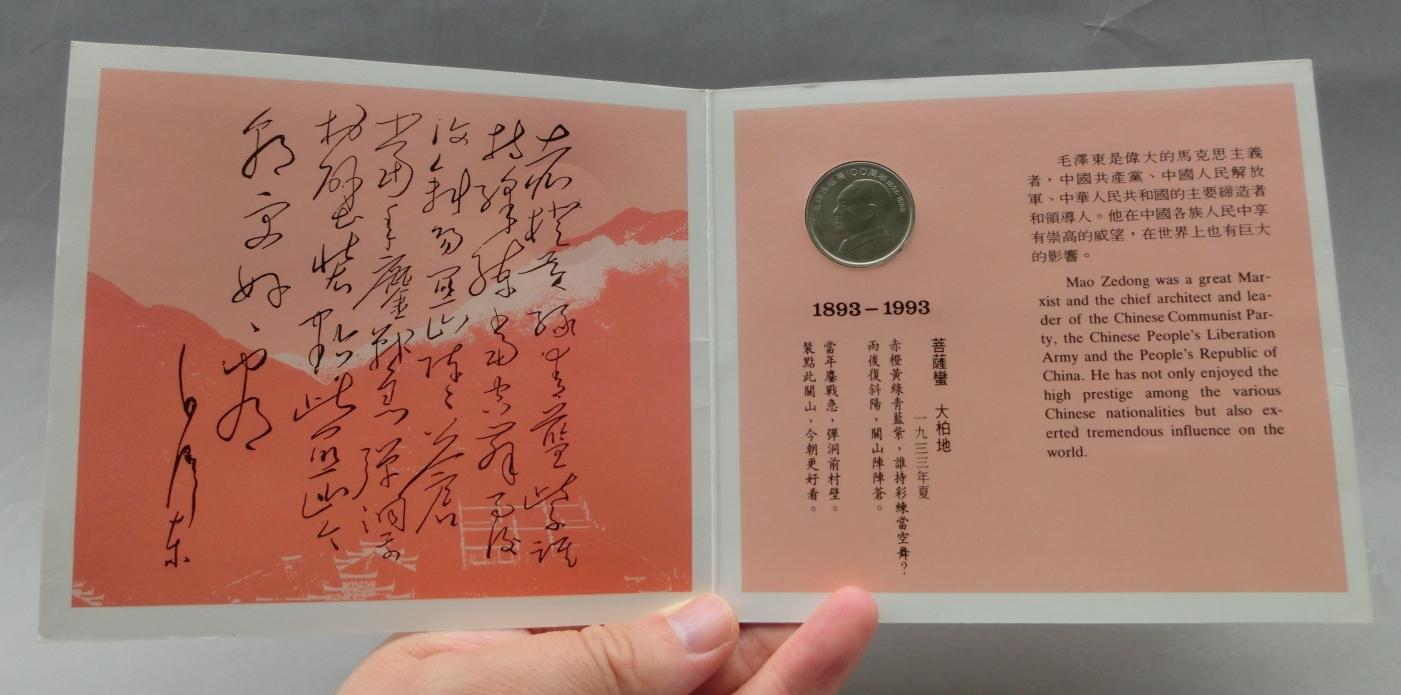 赤橙黃綠青藍紫誰
持彩練當空舞雨後
復斜陽關山陣陣蒼
當年鏖戰急彈洞前
村壁裝點此關山今
朝更好看
毛澤東
毛泽东诞辰100周年1893-1993
1893-1993
菩薩蠻 大柏地
一九三三年夏
赤橙黃綠青藍紫，誰持彩練當空舞？
雨後復斜陽，關山陣陣蒼。
當年鏖戰急，彈洞前村壁。
裝點此關山，今朝更好看。
毛澤東是偉大的馬克思主義
者，中國共產黨、中國人民解放
軍、中華人民共和國的主要締造者
和領導人。他在中國各族人民中享
有崇高的威望，在世界上也有巨大
的影響。
Mao Zedong was a great Mar-
xist and the chief architect and lea-
der of the Chinese Communist Par-
ty, the Chinese People's Liberation
Army and the People's Republic of
China. He has not only enjoyed the
high prestige among the various
Chinese nationalities but also ex-
erted tremendous influence on the
world.